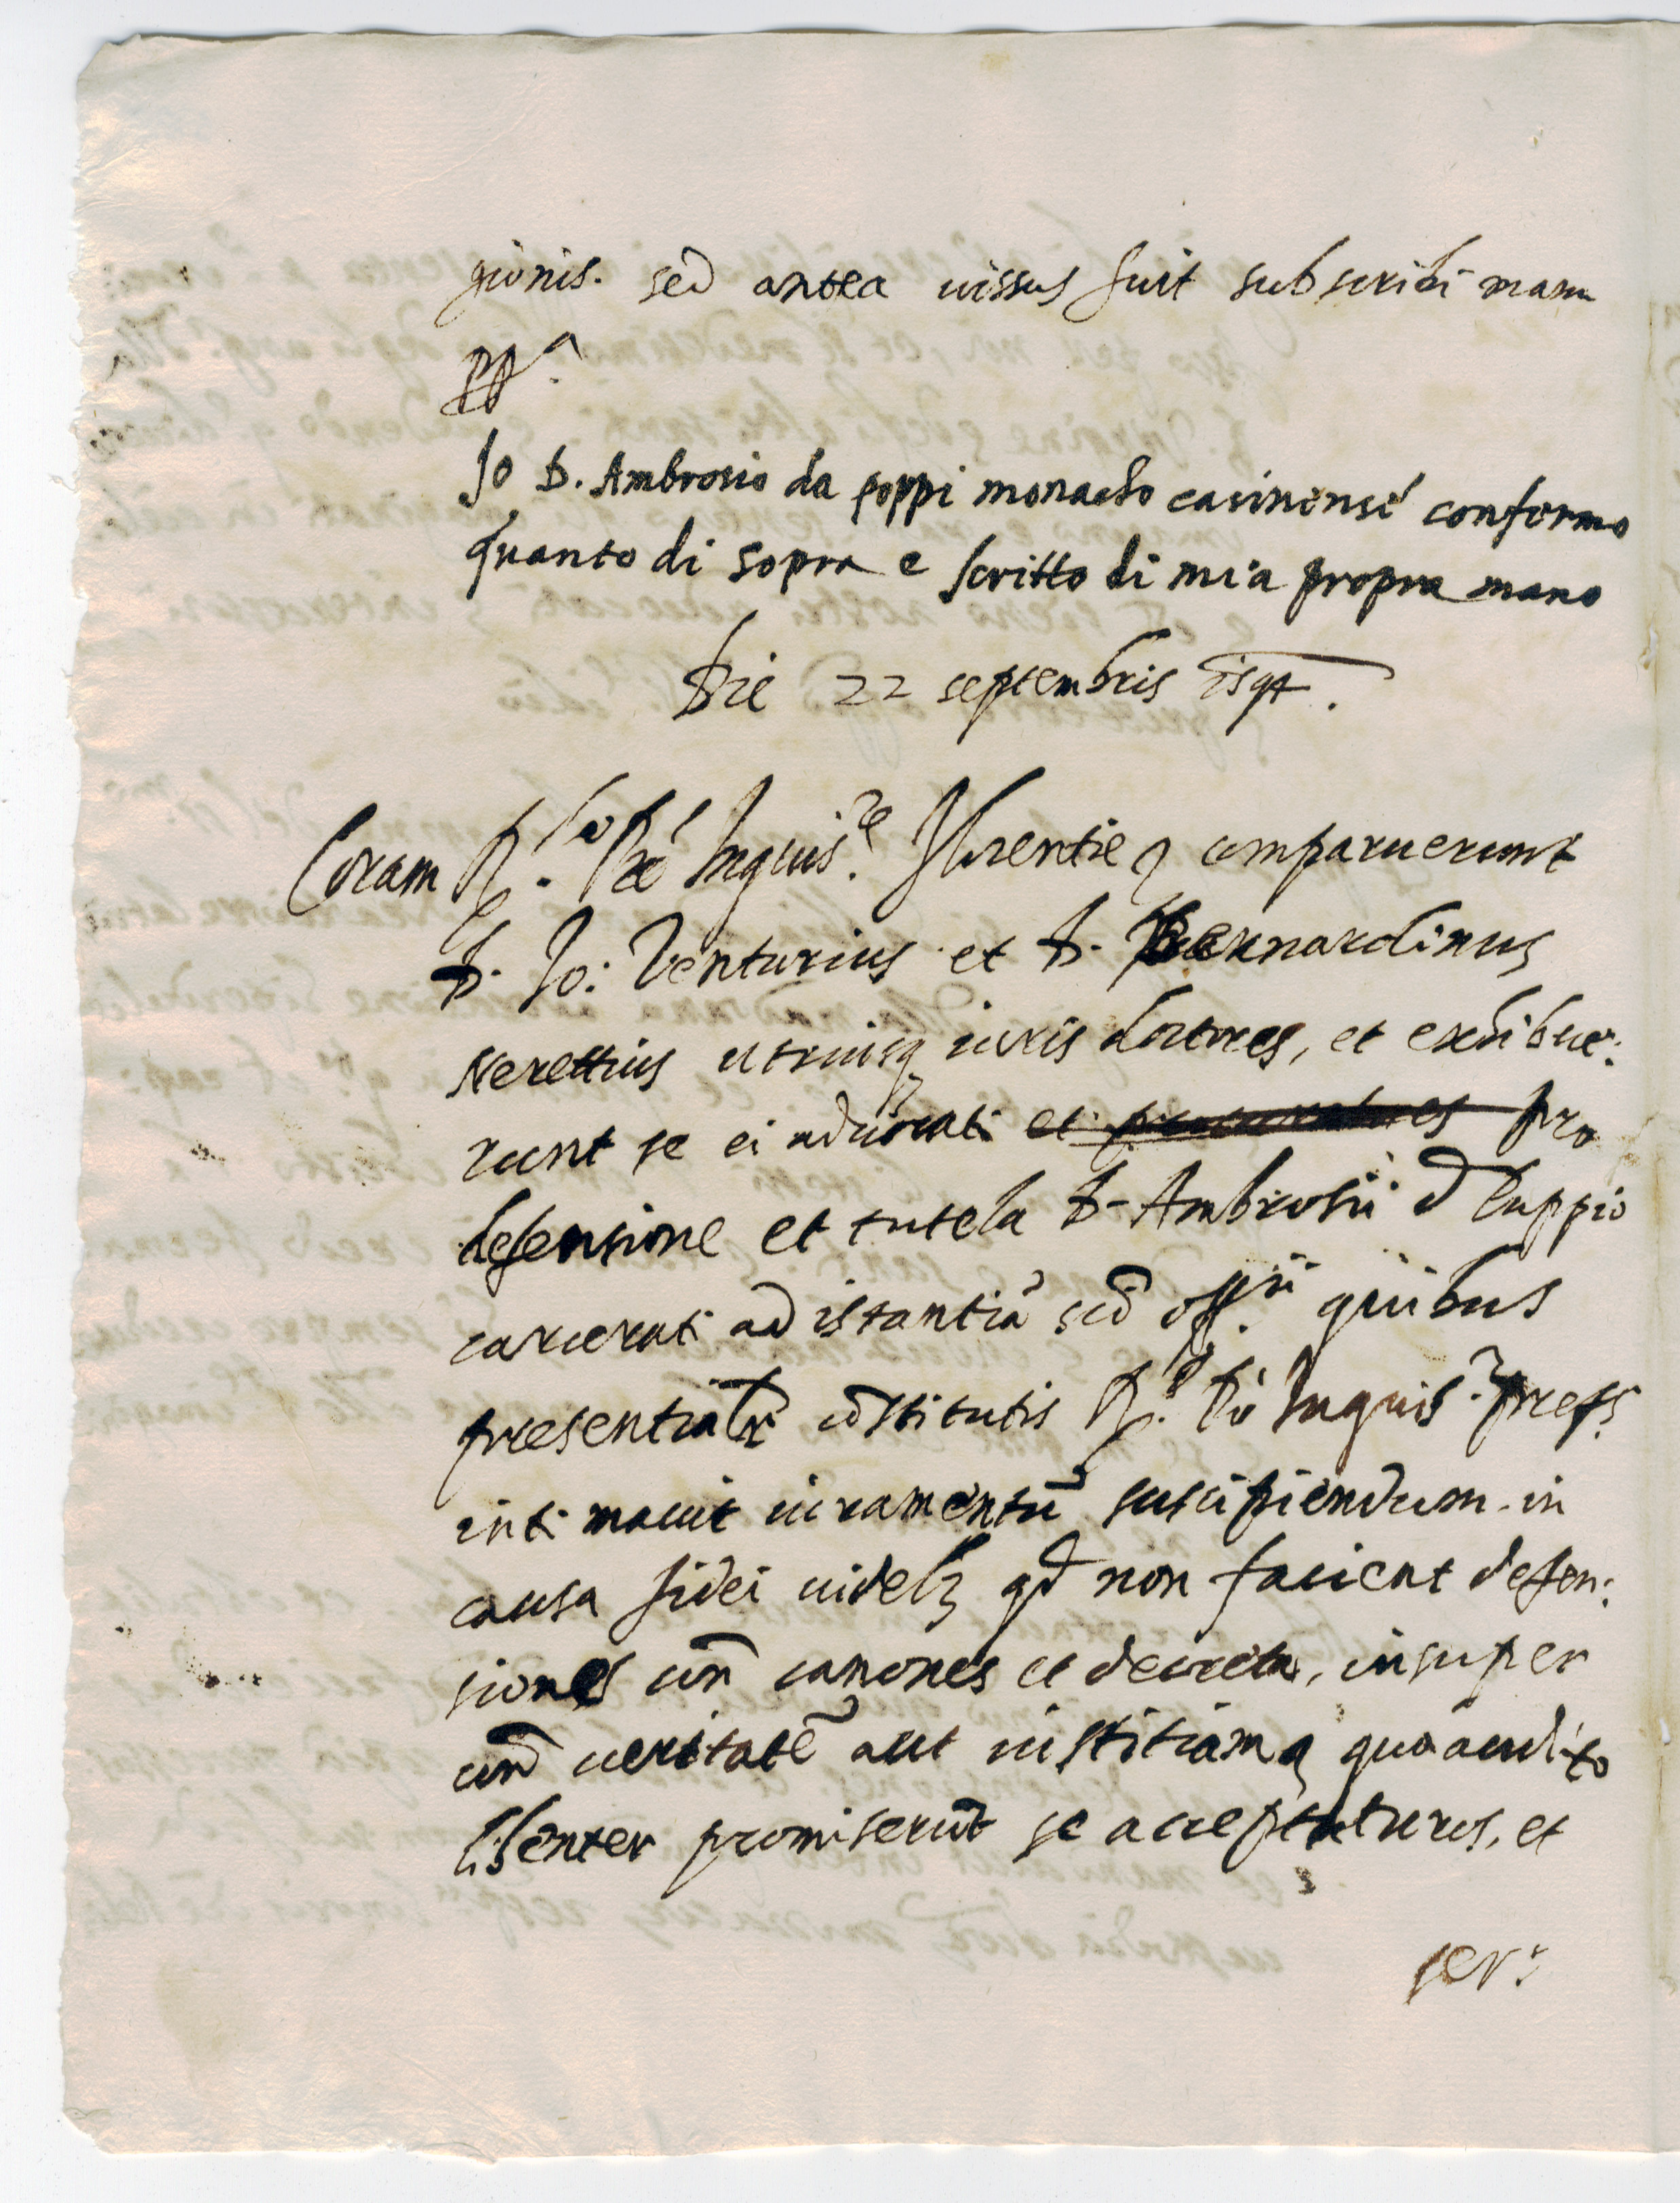 gionis. sed antea iussus fuit subscribi manu
pp.ᵃ
Io D. Ambrosio da poppi monacho casinensé confermo
quanto di sopra e scritto di mia propra mano
Die 22 septembris 1594.
Coram R.ᵈᵒ Pe Inquis.ʳᵉ Florentie comparuerunt
D. Jo: Venturius et D. Bernardinus
Nerettius utriusq iuris doctores, et exhibue:
runt se ei advocati et procuratores pro
defensione et tutela D. Ambrosii d Puppio
carcerati ad istantiā scī off.ⁱⁱ quibus
presentialr cōstitutis R.ᵈ Pr Inquis.ʳ prefs
intimavit iuramentū suscipiendum in
causa fidei videlꝫ qd non facient defen:
siones con canones et decreta, insuper
con veritatē aut iustitiam, quo audito
libenter promiserūt se accepturos, et
ser: